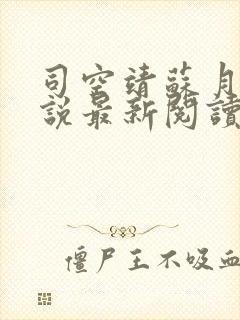 司空靖蘇月
說最新閱讀
僵尸王不吸血